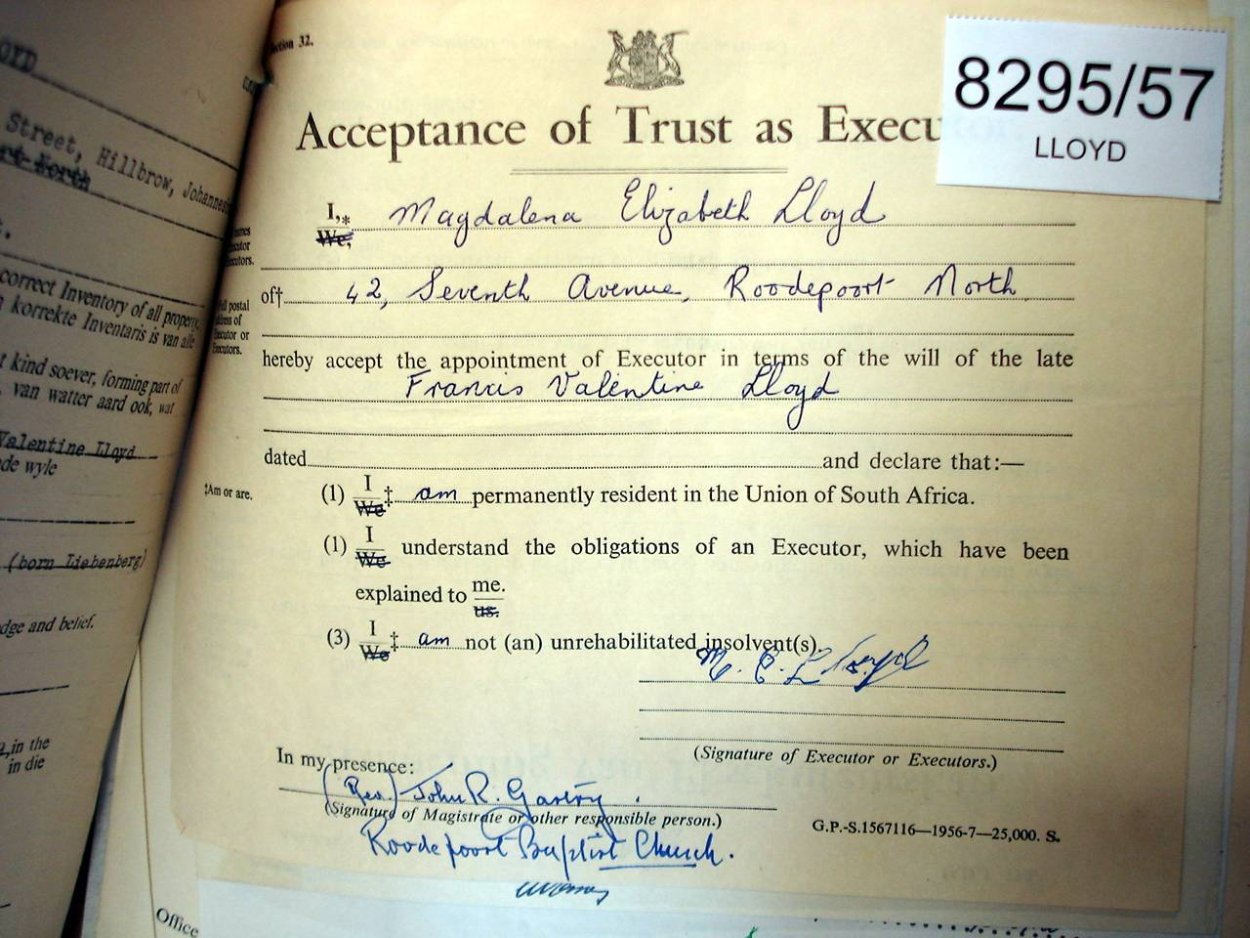 OYD
Street, Hillbrow, Johannes
rt North
correct Inventory of all property,
korrekte Inventaris is van alle
t kind soever, forming part of
van watter aard ook, wat
Valentine Lloyd
de wyle
(born Liebenberg)
dge and belief.
in the
in die
Office
8295/57
LLOYD
ction 32.
Acceptance of Trust as Execu
I,*
We,
Magdalena Elizabeth Lloyd
of† 42, Seventh Avenue, Roodepoort North
postal
Executor or
Executors.
hereby accept the appointment of Executor in terms of the will of the late
Francis Valentine Lloyd
dated and declare that:—
‡Am or are.
(1) I
We ‡ am permanently resident in the Union of South Africa.
(1) I
We understand the obligations of an Executor, which have been
explained to me.
us.
(3) I
We ‡ am not (an) unrehabilitated insolvent(s).
M. E. Lloyd
(Signature of Executor or Executors.)
In my presence:
(Rev.) John R.
(Signature of Magistrate or other responsible person.)
G.P.-S.1567116—1956-7—25,000. S.
Roodepoort Baptist Church.